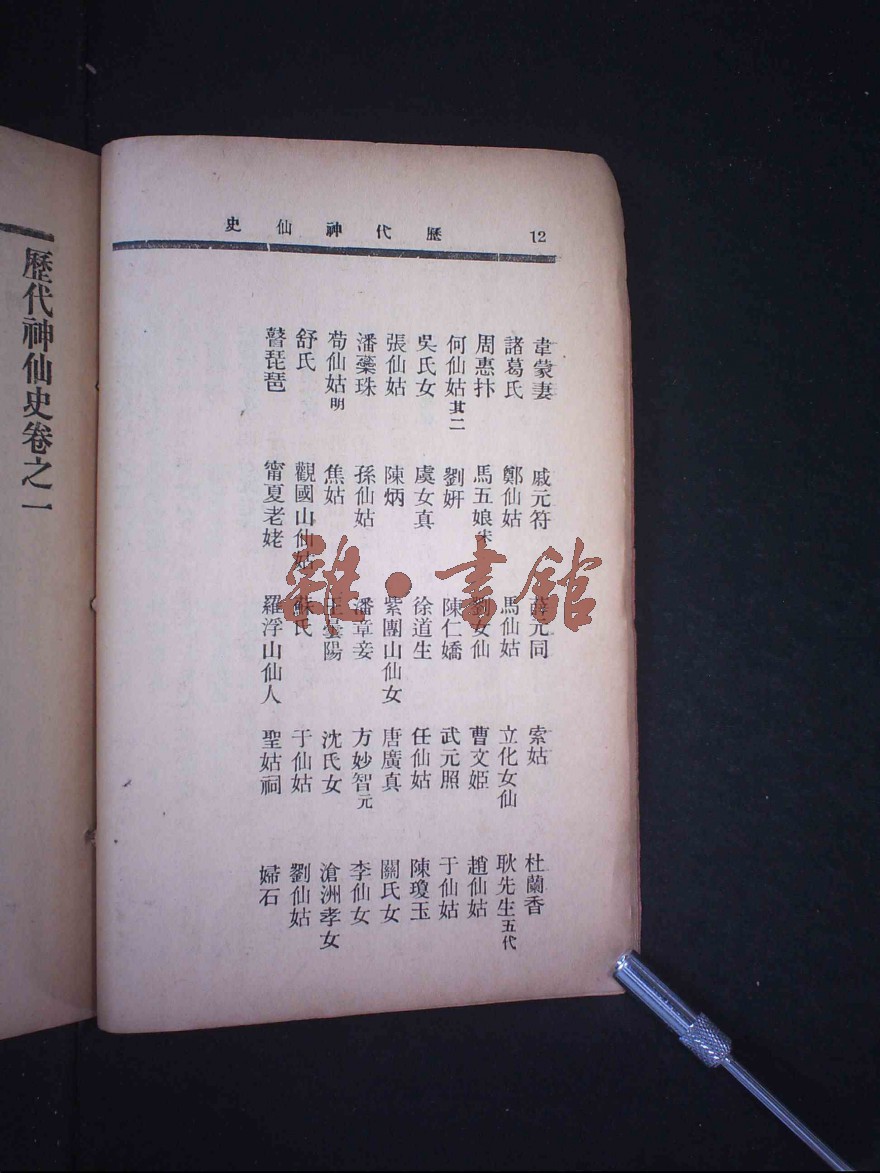 歷代神仙史
12
韋蒙妻　戚元符　薛元同　索姑　杜蘭香
諸葛氏　鄭仙姑　馬仙姑　立化女仙　耿先生五代
周惠抃　馬五娘宋　劉女仙　曹文姬　趙仙姑
何仙姑其二　劉妍　陳仁嬌　武元照　于仙姑
吳氏女　虞女真　徐道生　任仙姑　陳瓊玉
張仙姑　陳炳　紫團山仙女　唐廣真　關氏女
潘藥珠　孫仙姑　潘章妾　方妙智元　李仙女
荀仙姑明　焦姑　王曇陽　沈氏女　滄洲孝女
舒氏　觀國山仙姑　蘇氏　于仙姑　劉仙姑
瞽琵琶　甯夏老姥　羅浮山仙人　聖姑祠　婦石
歷代神仙史卷之一
雜·書館